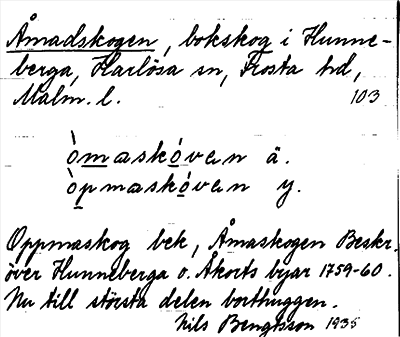 Åmadskogen, bokskog i Hunne-
berga, Harlösa sn, Frosta hd,
Malm. l. 103
òmaskóvan ä.
òpmaskóvan y.
Oppmaskog bek, Åmaskogen Beskr.
över Hunneberga o. Åkorts byar 1759-60.
Nu till största delen borthuggen.
Nils Bengtsson 1935